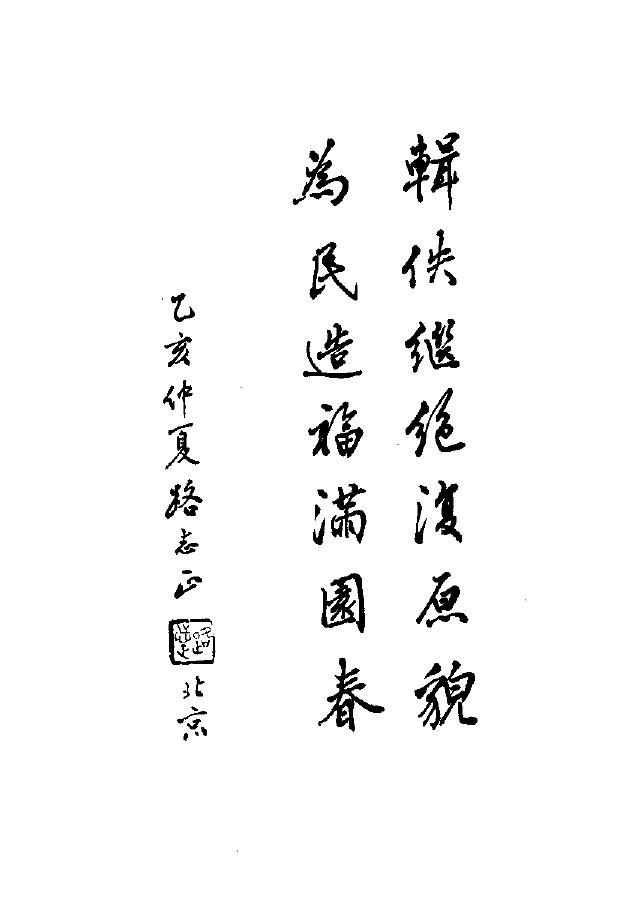 輯佚繼绝復原貌
為民造福满園春
乙亥仲夏路志正
北京